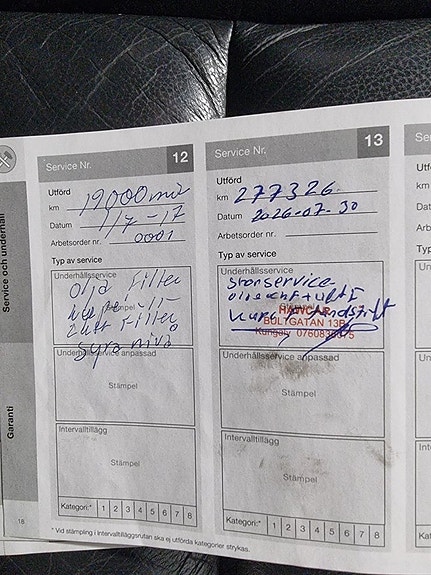 Service och underhåll
Garanti
18
Service Nr. 12
Utförd
km 19000 mil
Datum 1/7-17
Arbetsorder nr. 0001
Typ av service
Underhållsservice
Olja Filter
Luft Filter
Syra nivå
Underhållsservice anpassad
Stämpel
Intervalltillägg
Stämpel
Kategori:* 1 2 3 4 5 6 7 8
Service Nr. 13
Utförd
km 277326
Datum 2026-07-30
Arbetsorder nr.
Typ av service
Underhållsservice
storservice
BULTGATAN 13B
Kungälv
Underhållsservice anpassad
Stämpel
Intervalltillägg
Stämpel
Kategori:* 1 2 3 4 5 6 7 8
* Vid stämpling i Intervalltilläggsrutan ska ej utförda kategorier strykas.
Se
Utfö
km
Datu
Arbe
Typ